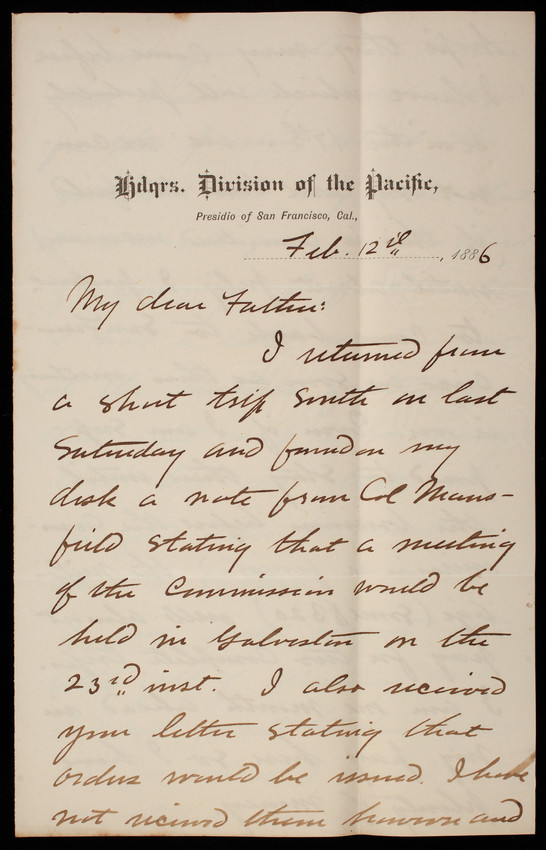 Hdqrs. Division of the Pacific,
Presidio of San Francisco, Cal.,
Feb. 12th, 1886
My dear Father:
I returned from
a short trip South on last
Saturday and found on my
desk a note from Col Mans-
field stating that a meeting
of the Commission would be
held in Galveston on the
23rd inst. I also received
your letter stating that
orders would be issued. I have
not received them however and